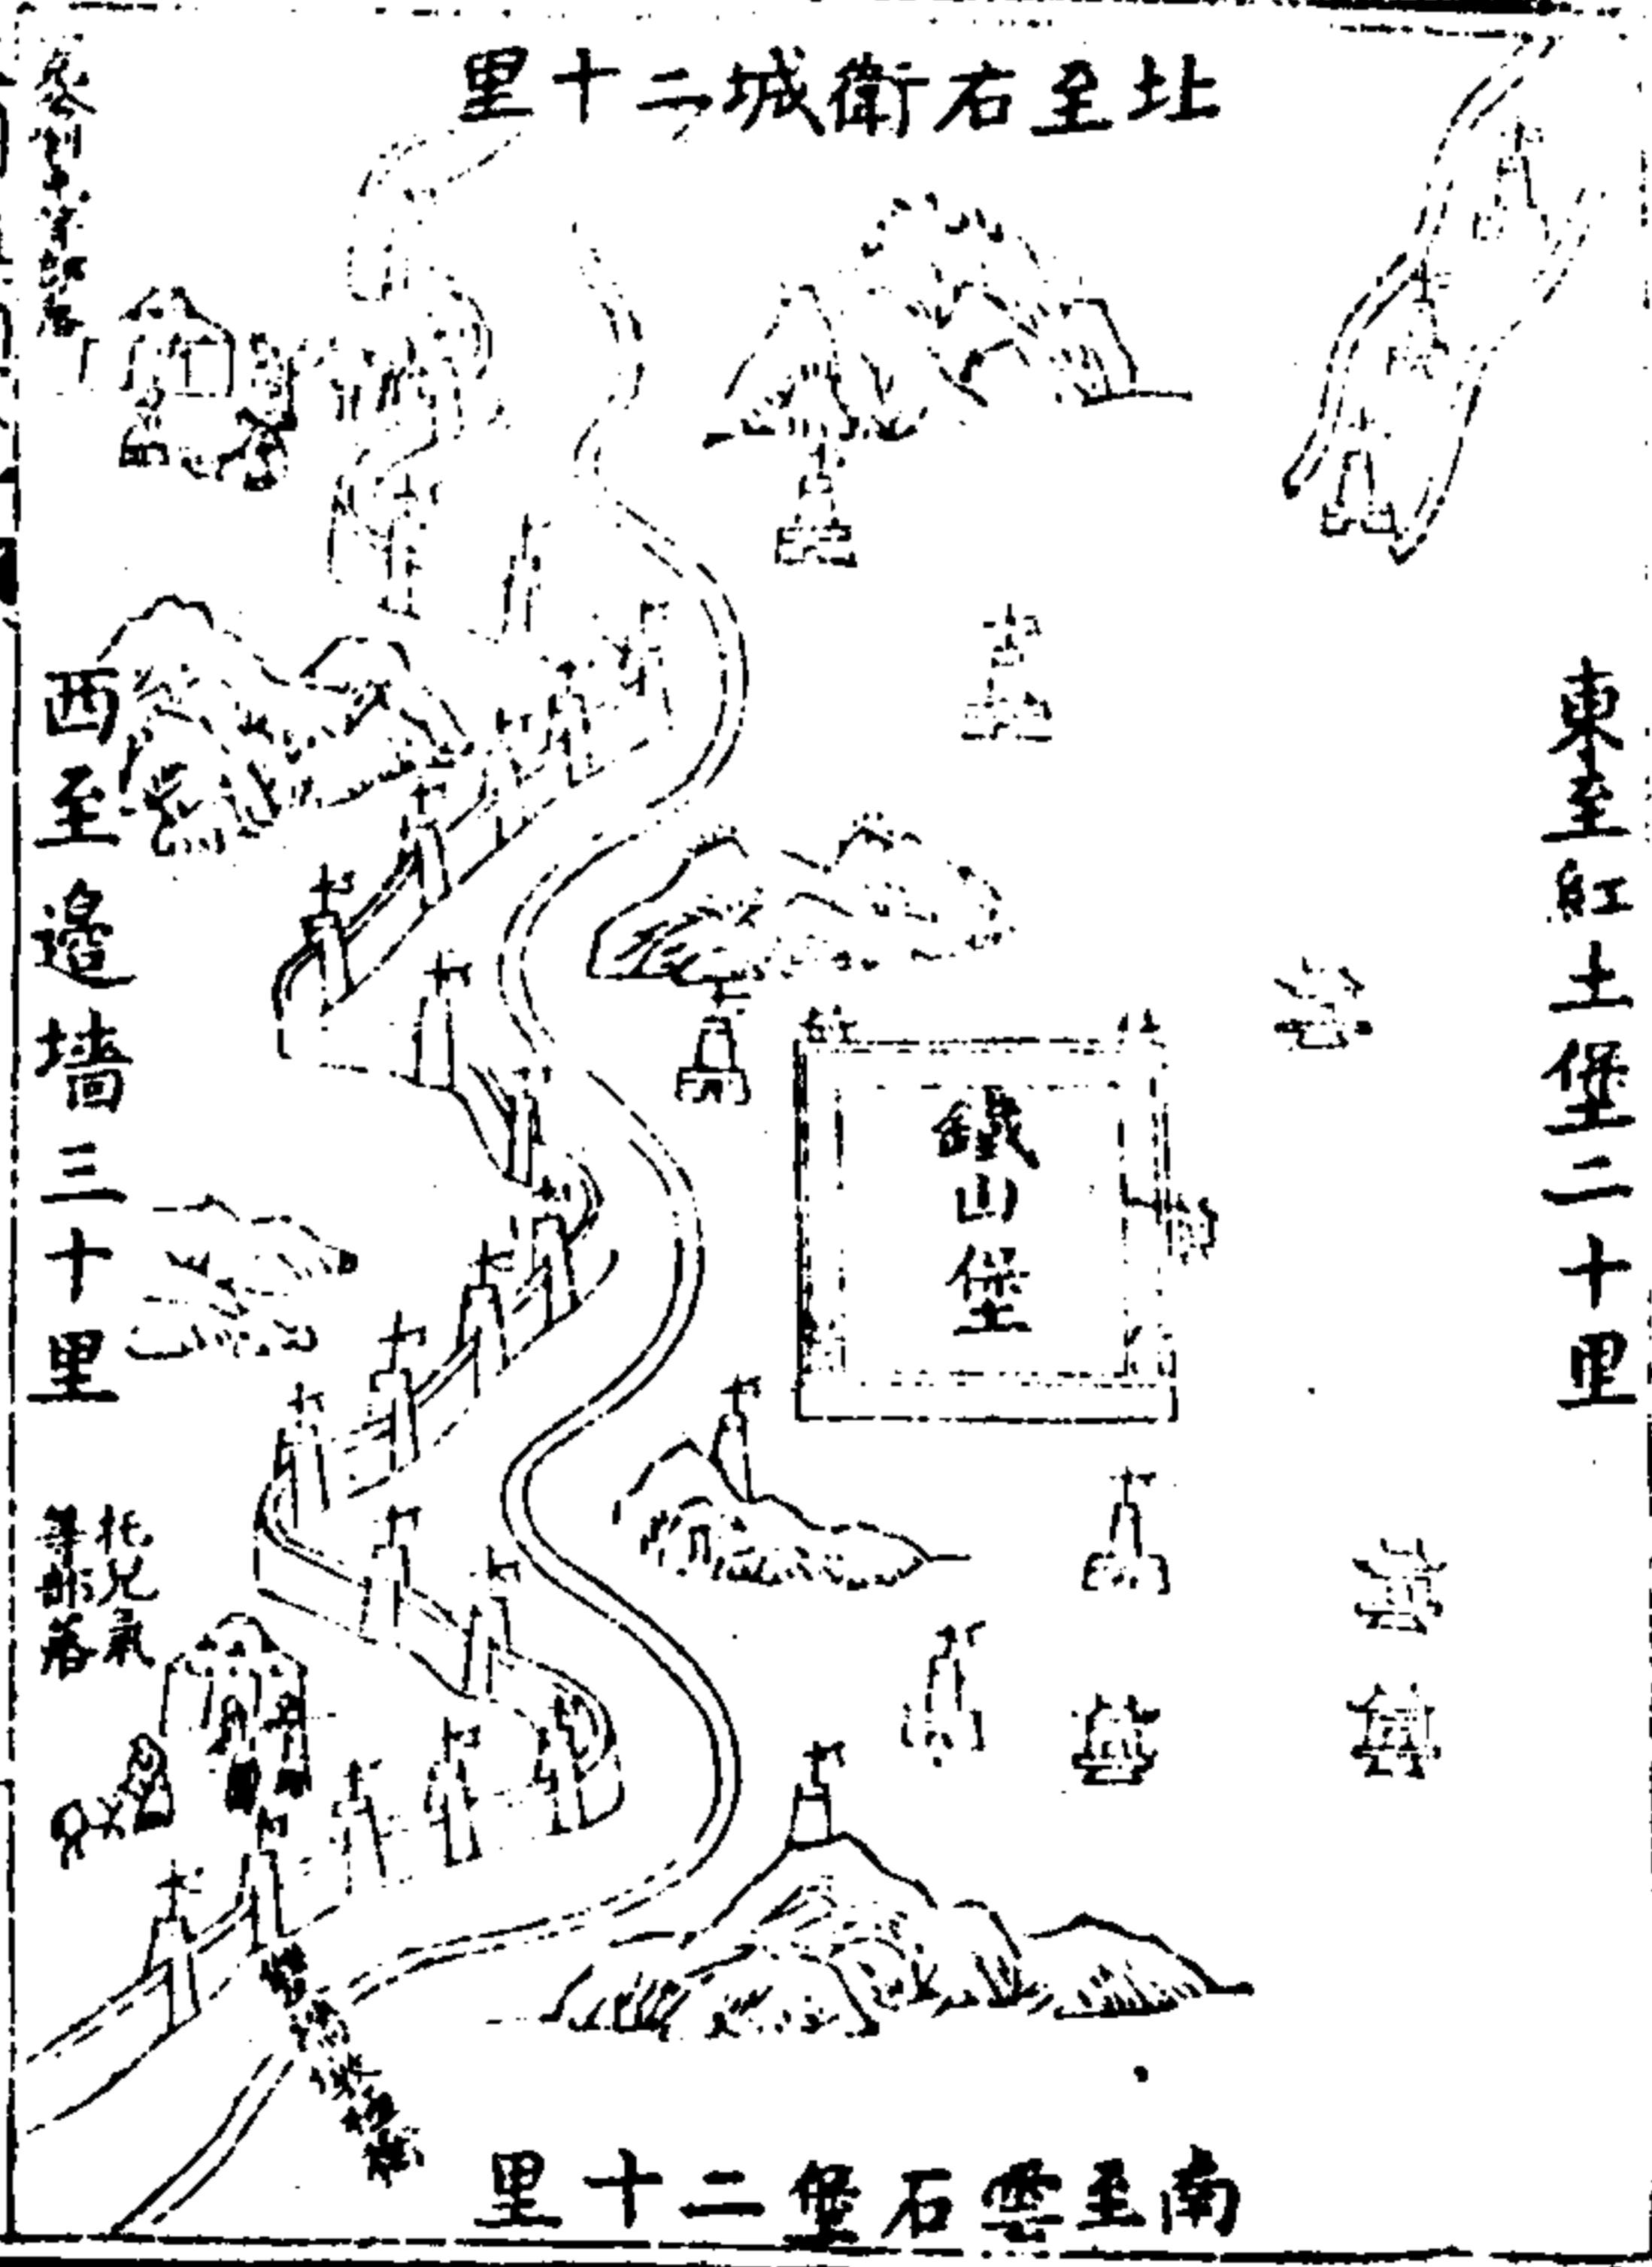 北至右衛城二十里
東至紅土堡二十里
鐵山堡
西至邊墻三十里
托兒氣
等部落
南至雲石堡二十里